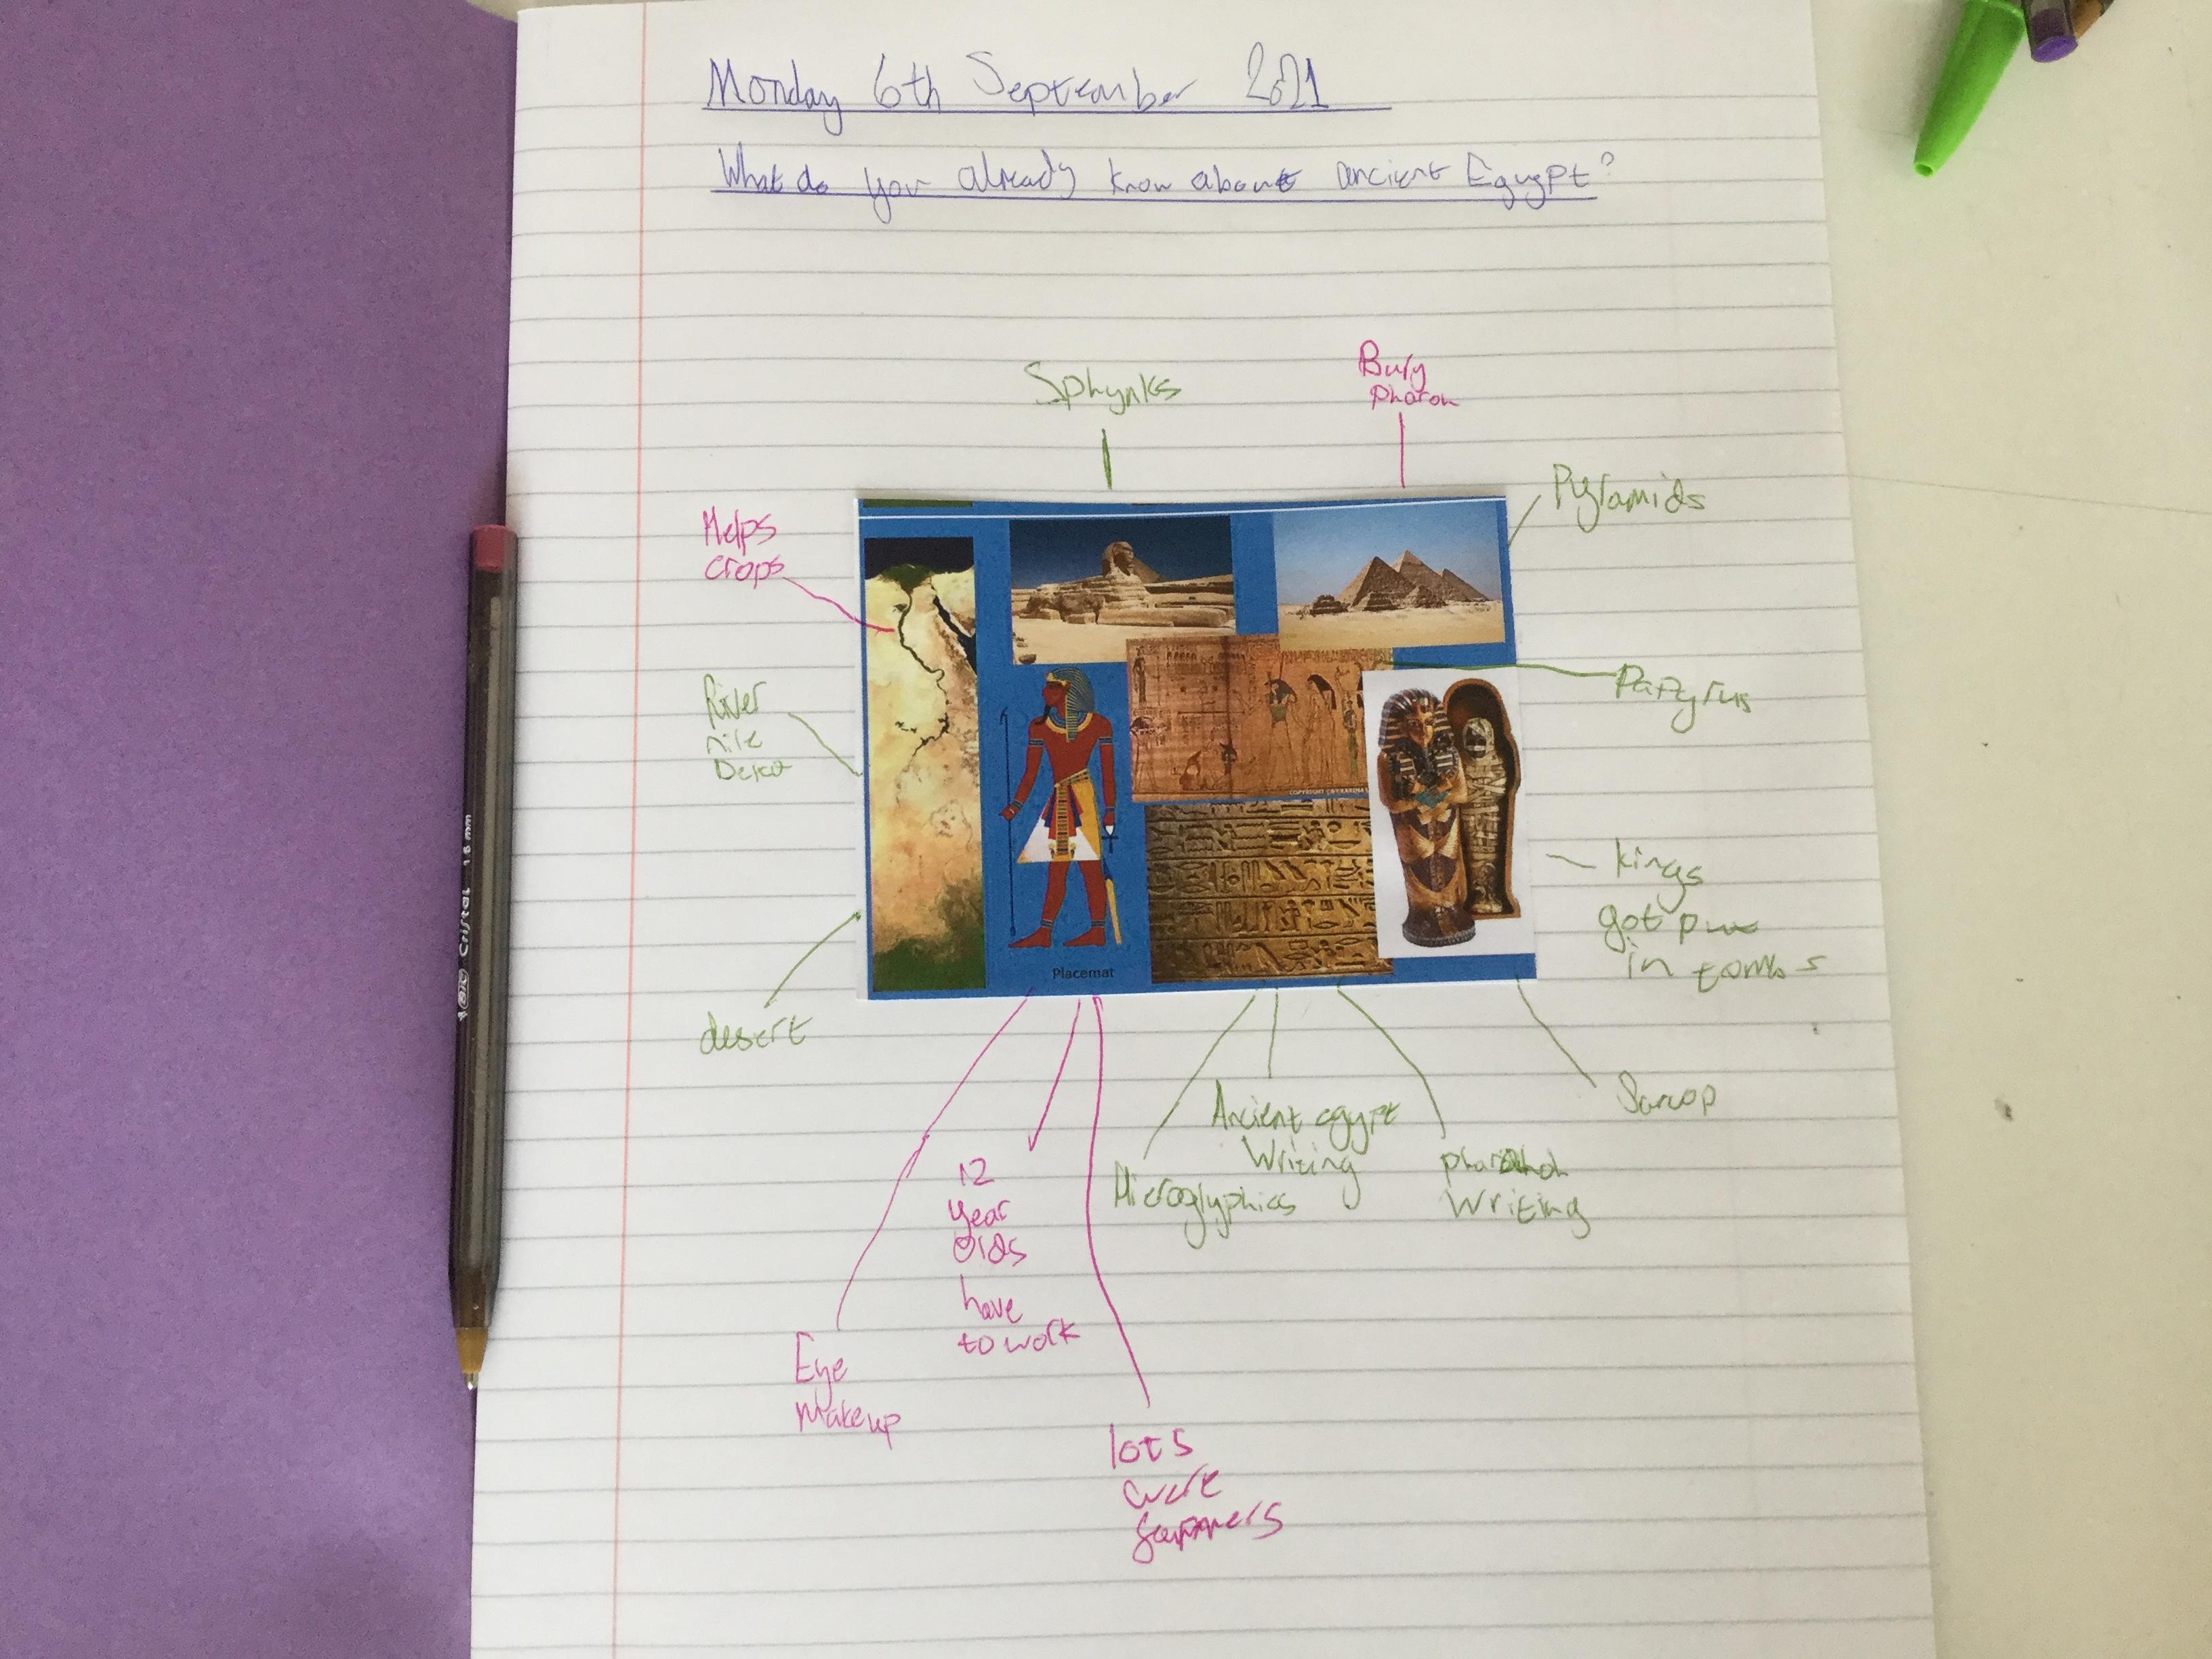 Monday 6th September 2021
What do you already know about ancient Egypt?
Sphynks
Bury
pharoh
Pyramids
Helps
crops
Papyrus
River
nile
kings
got put
in tombs
desert
Placemat
Sarcop
Ancient egypt
Writing
Hieroglyphics
Writing
12
year
olds
have
to work
Eye
Makeup
lots
were
farmers
BIC Cristal 1.6 mm